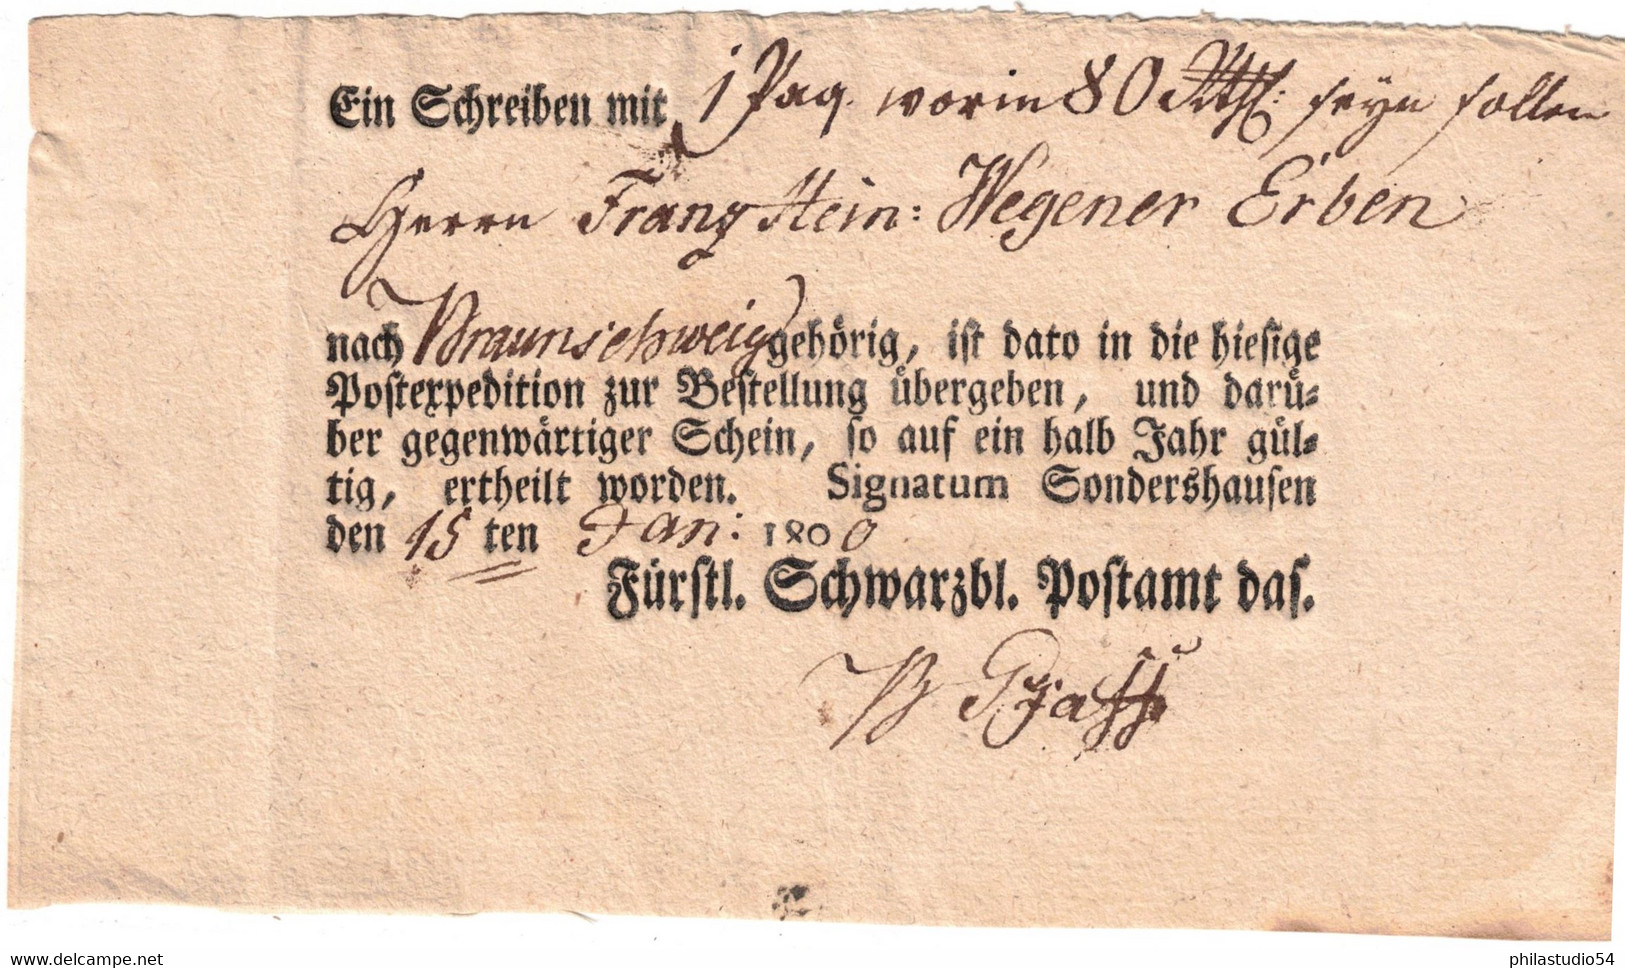 Ein Schreiben mit 1 Paq. worin 80 Rthl: seyn sollen
Herrn Franz Hein: Wegener Erben
nach Braunschweig gehörig, ist dato in die hiesige
Postexpedition zur Bestellung übergeben, und darü-
ber gegenwärtiger Schein, so auf ein halb Jahr gül-
tig, ertheilt worden. Signatum Sondershausen
den 15 ten Jan: 1800
Fürstl. Schwarzbl. Postamt das.
delcampe.net
philastudio54